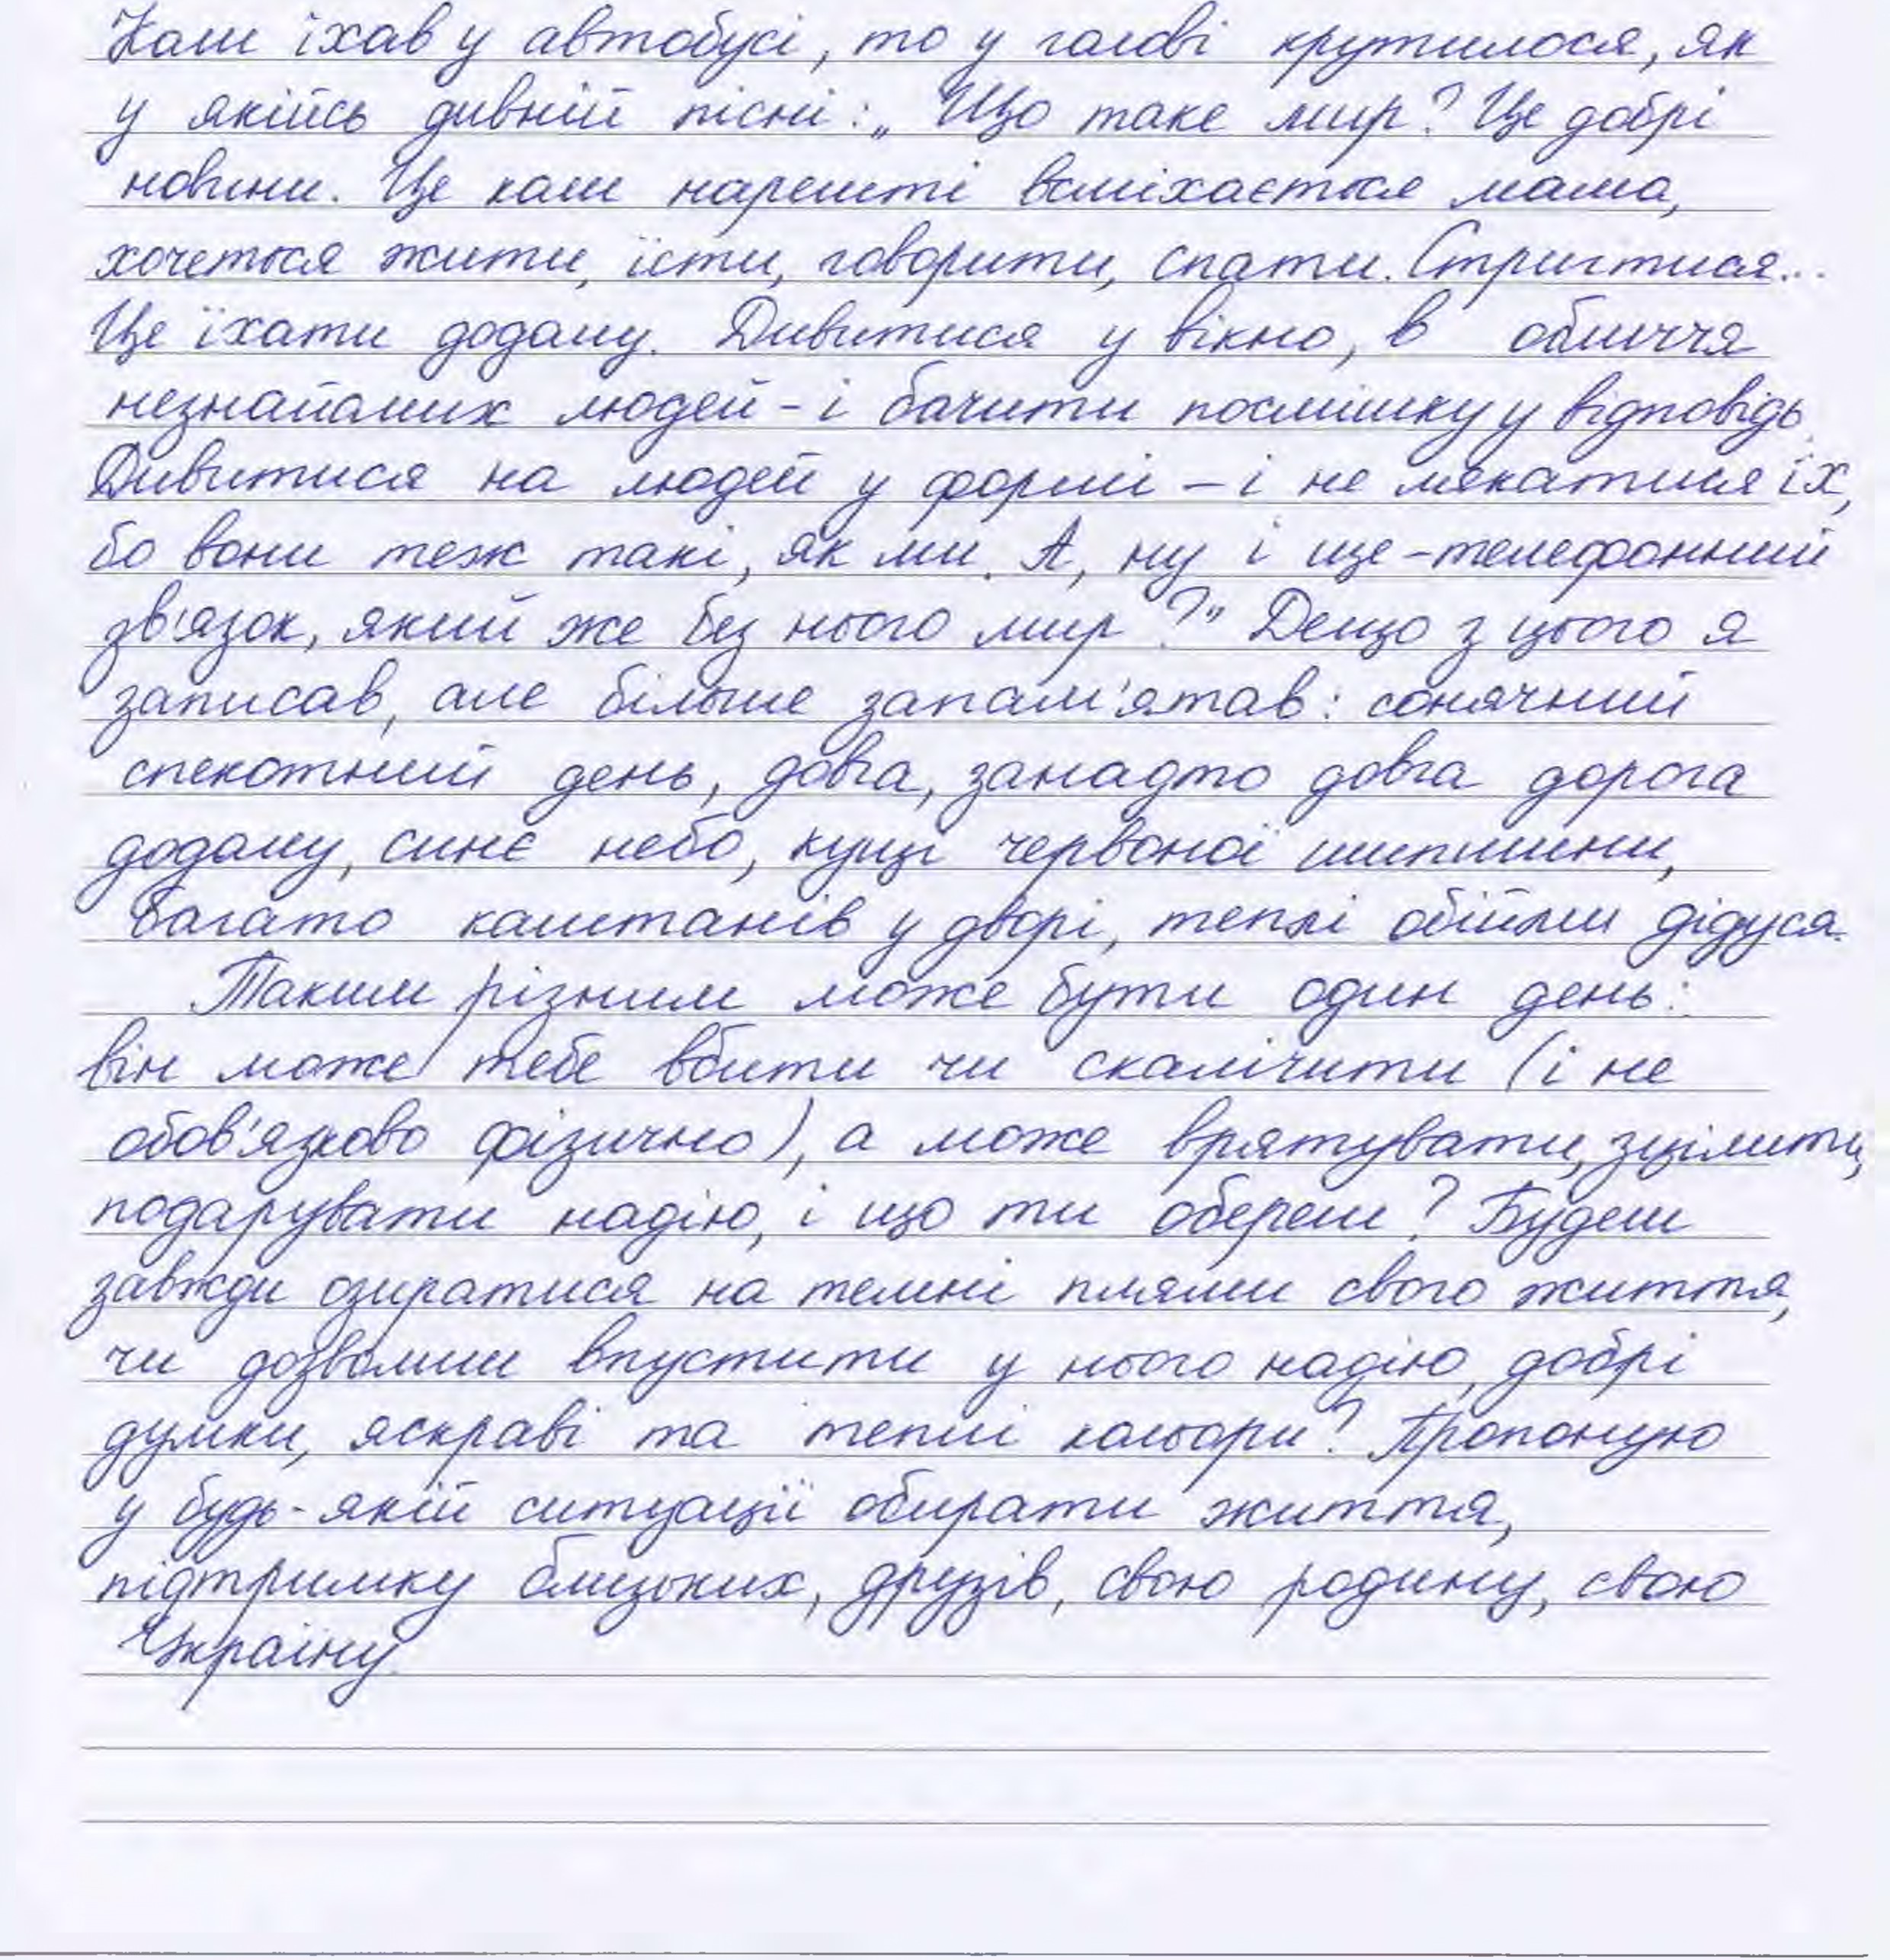 Коли їхав у автобусі, то у голові крутилося, як
у якійсь дивній пісні: „Що таке мир? Це добрі
новини. Це коли нарешті всміхається мама,
хочеться жити, їсти, говорити, спати. Стригтися...
Це їхати додому. Дивитися у вікно, в обличчя
незнайомих людей - і бачити посмішку у відповідь.
Дивитися на людей у формі - і не лякатися їх,
бо вони теж такі, як ми. А, ну і ще - телефонний
зв'язок, який же без нього мир?" Дещо з цього я
записав, але більше запам'ятав: сонячний
спекотний день, довга, занадто довга дорога
додому, синє небо, кущі червоної шипшини,
багато каштанів у дворі, теплі обійми дідуся.
Таким різним може бути один день:
він може тебе вбити чи скалічити (і не
обов'язково фізично), а може врятувати, зцілити,
подарувати надію, і що ти обереш? Будеш
завжди озиратися на темні плями свого життя,
чи дозволиш впустити у нього надію, добрі
думки, яскраві та теплі кольори? Пропоную
у будь-якій ситуації обирати життя,
підтримку близьких, друзів, свою родину, свою
Україну.